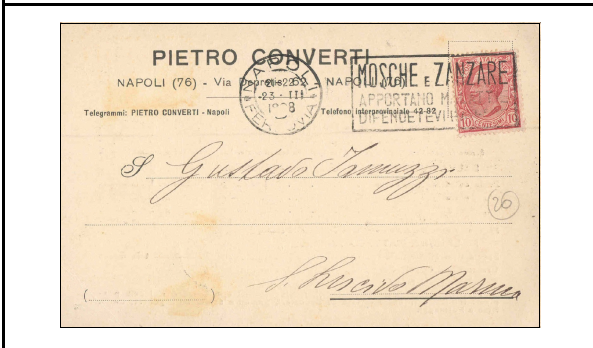 PIETRO CONVERTI
NAPOLI (76) - Via Depretis, 62 NAPOLI (76)
Telegrammi: PIETRO CONVERTI - Napoli Telefono interprovinciale 42-82
NAPOLI
21-22
23·III
1928
FERROVIA
MOSCHE E ZANZARE
APPORTANO
DIFENDETEVI
10 CENT 10
Gustavo Iannuzzi
26
S. Lucido Marina
(                    )